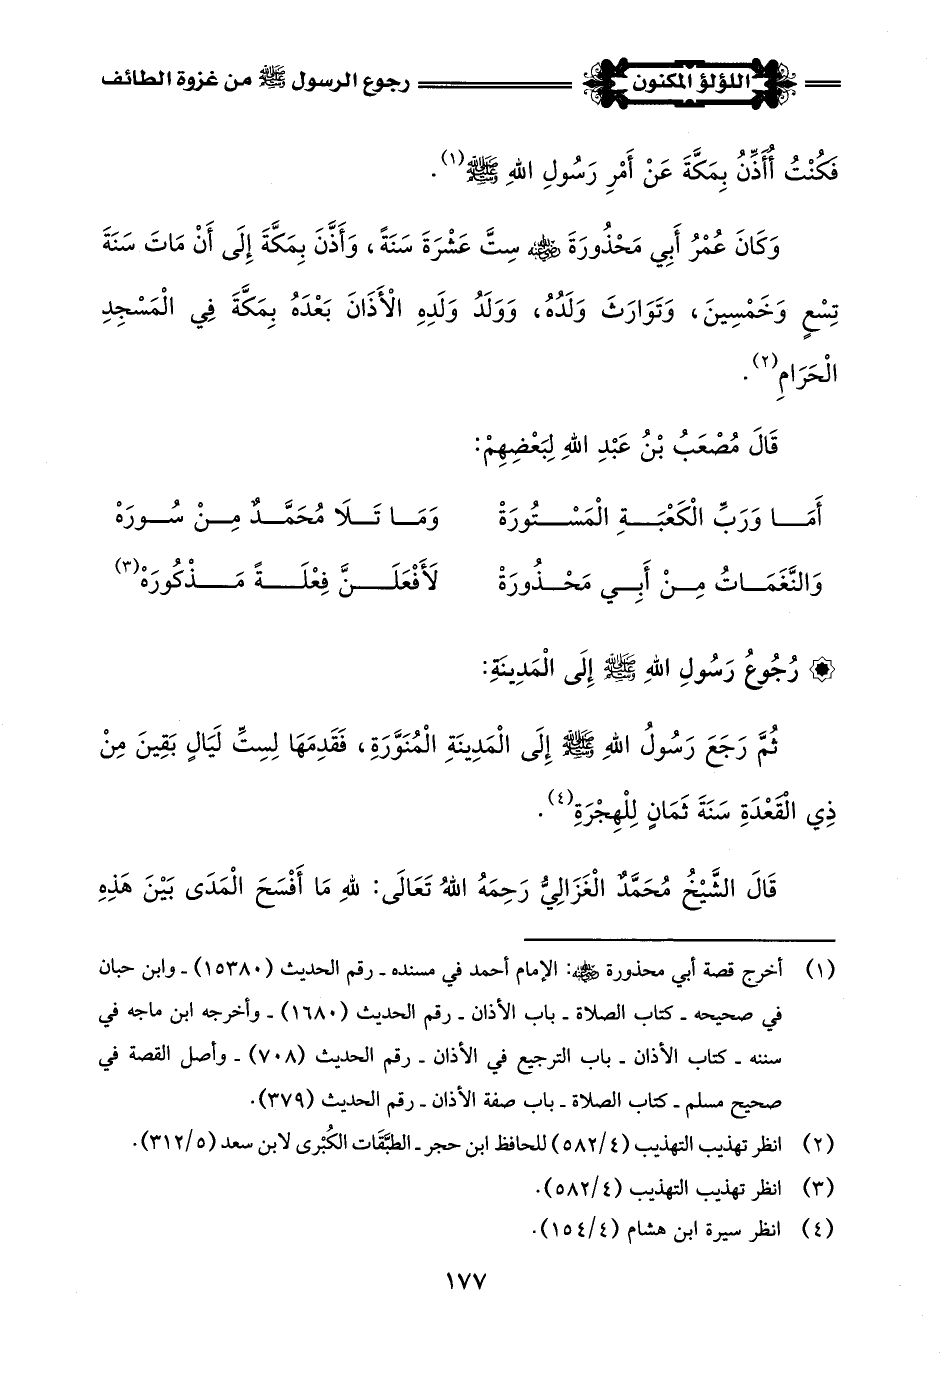 اللؤلؤ المكنون رجوع الرسول ﷺ من غزوة الطائف
فَكُنْتُ أُؤَذِّنُ بِمَكَّةَ عَنْ أَمْرِ رَسُولِ اللهِ ﷺ(١).
وَكَانَ عُمْرُ أَبِي مَحْذُورَةَ رضي الله عنه سِتَّ عَشْرَةَ سَنَةً، وَأَذَّنَ بِمَكَّةَ إِلَى أَنْ مَاتَ سَنَةَ
تِسْعٍ وَخَمْسِينَ، وَتَوَارَثَ وَلَدُهُ، وَوَلَدُ وَلَدِهِ الْأَذَانَ بَعْدَهُ بِمَكَّةَ فِي الْمَسْجِدِ
الْحَرَامِ(٢).
قَالَ مُصْعَبُ بْنُ عَبْدِ اللهِ لِبَعْضِهِمْ:
أَمَا وَرَبِّ الْكَعْبَةِ الْمَسْتُورَةْ وَمَا تَلَا مُحَمَّدٌ مِنْ سُورَهْ
وَالنَّغَمَاتُ مِنْ أَبِي مَحْذُورَةْ لَأَفْعَلَنَّ فِعْلَةً مَذْكُورَهْ(٣)
رُجُوعُ رَسُولِ اللهِ ﷺ إِلَى الْمَدِينَةِ:
ثُمَّ رَجَعَ رَسُولُ اللهِ ﷺ إِلَى الْمَدِينَةِ الْمُنَوَّرَةِ، فَقَدِمَهَا لِسِتِّ لَيَالٍ بَقِينَ مِنْ
ذِي الْقَعْدَةِ سَنَةَ ثَمَانٍ لِلْهِجْرَةِ(٤).
قَالَ الشَّيْخُ مُحَمَّدٌ الْغَزَالِيُّ رَحِمَهُ اللهُ تَعَالَى: للهِ مَا أَفْسَحَ الْمَدَى بَيْنَ هَذِهِ
(١) أخرج قصة أبي محذورة رضي الله عنه: الإمام أحمد في مسنده ـ رقم الحديث (١٥٣٨٠) ـ وابن حبان
في صحيحه ـ كتاب الصلاة ـ باب الأذان ـ رقم الحديث (١٦٨٠) ـ وأخرجه ابن ماجه في
سننه ـ كتاب الأذان ـ باب الترجيع في الأذان ـ رقم الحديث (٧٠٨) ـ وأصل القصة في
صحيح مسلم ـ كتاب الصلاة ـ باب صفة الأذان ـ رقم الحديث (٣٧٩).
(٢) انظر تهذيب التهذيب (٥٨٢/٤) للحافظ ابن حجر ـ الطبَّقات الكُبْرى لابن سعد (٣١٢/٥).
(٣) انظر تهذيب التهذيب (٥٨٢/٤).
(٤) انظر سيرة ابن هشام (١٥٤/٤).
١٧٧